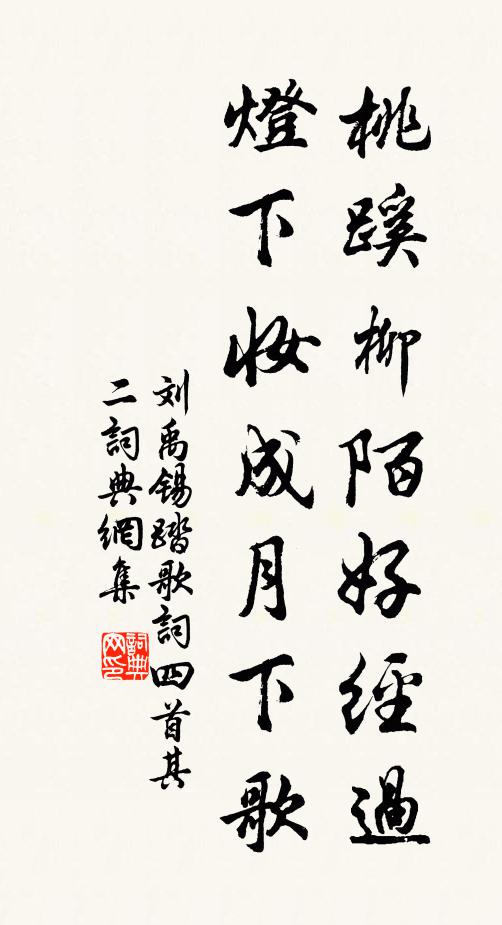 桃蹊柳陌好經過
燈下妝成月下歌
刘禹锡踏歌詞四首其
二詞典網集
詞典
网印